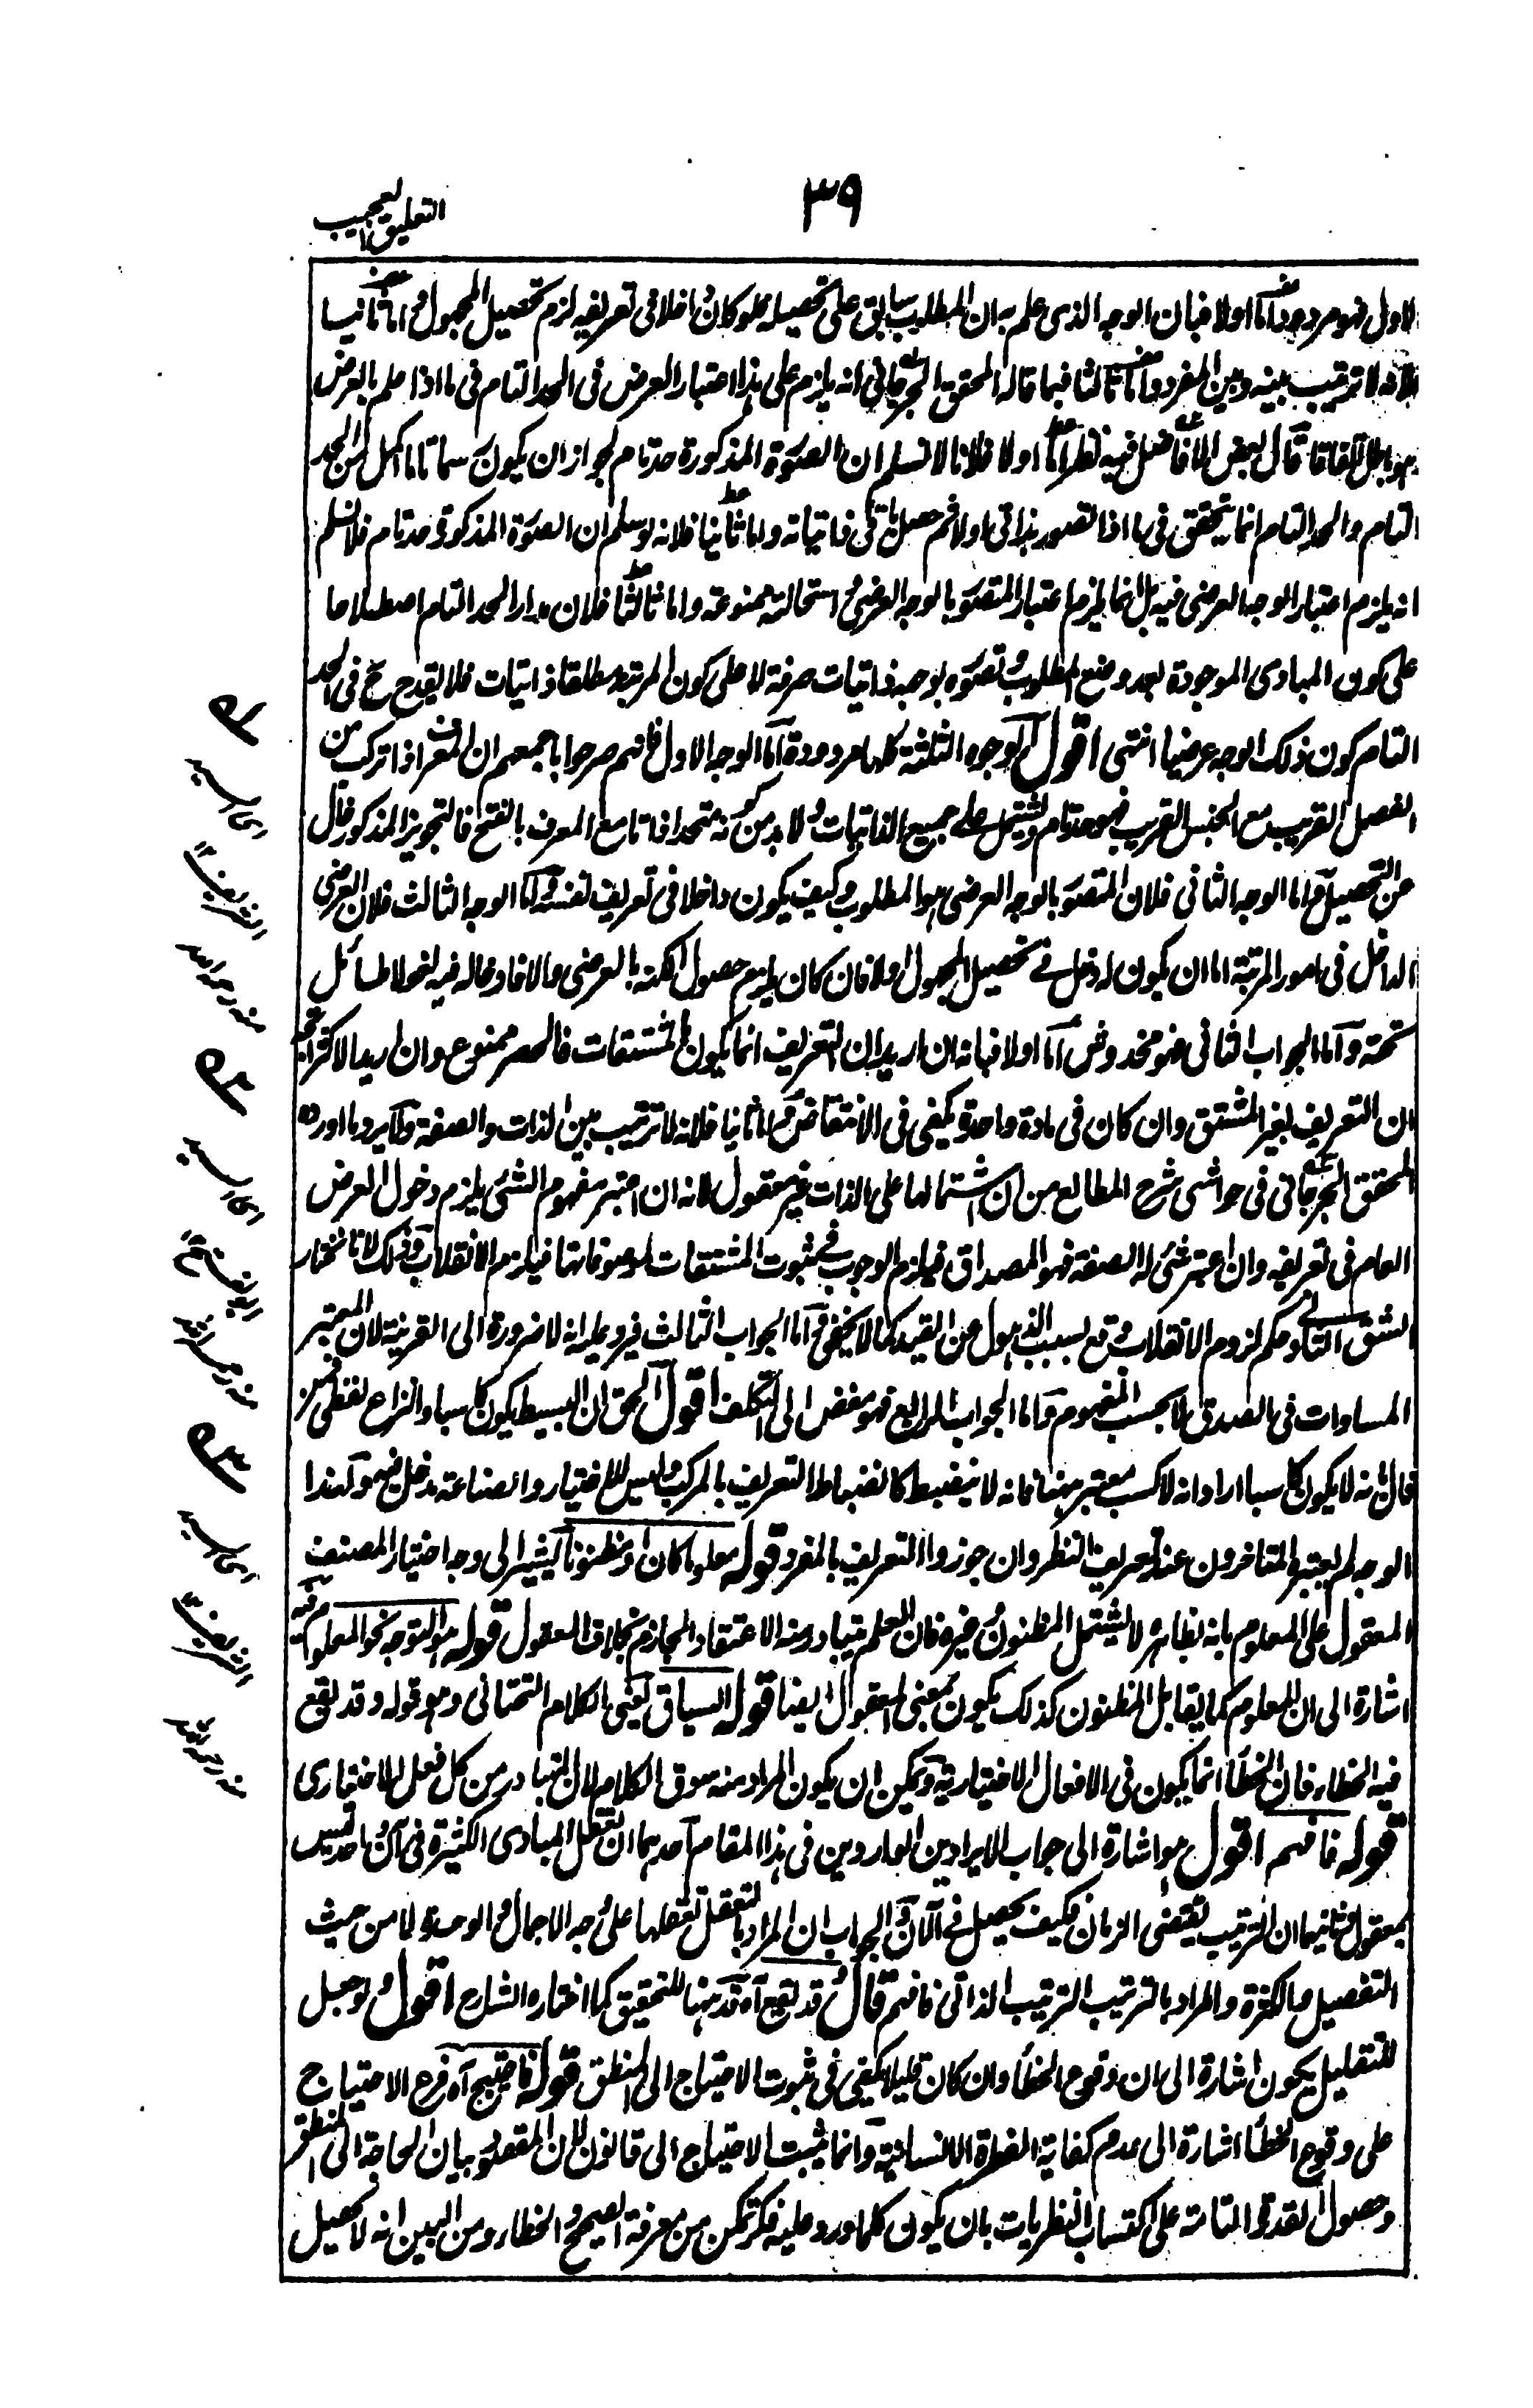 ٣٩
التعليق العجيب
الاول فهو مردود اما اولا فبان الوجه الذي علم به ان المطلوب سابق على تحصيله فلو كان داخلا في تعريفه لزم تحصيل المجهول واما ثانيا
فلانه لا ترتيب بينه وبين المفرد واما ثالثا فبما قاله المحقق الجرجاني انه يلزم على هذا اعتبار العرض في الحد التام في ما اذا علم بالعرض
وهو باطل اتفاقا قال بعض الافاضل فيه نظر اما اولا فلانا لا نسلم ان الصورة المذكورة حد تام لجواز ان يكون رسما تاما اكمل من الحد
التام والحد التام انما يتحقق في ما اذا تصور بذاتي اولا ثم حصل باقي ذاتياته واما ثانيا فلانه لو سلم ان الصورة المذكورة حد تام فلا نسلم
انه يلزم اعتبار الوجه العرضي فيه بل انما يلزم اعتبار المتصور بالوجه العرضي و استحالته ممنوعة واما ثالثا فلان مدار الحد التام اصطلاحا
على كون المبادي الموجودة بعد وضع المطلوب وتصوره بوجه ذاتيات صرفة لا على كون المرتبة مطلقا ذاتيات فلا يقدح ح في الحد
التام كون ذلك الوجه عرضيا انتهى اقول الوجوه الثلثة كلها مردودة اما الوجه الاول فانهم صرحوا باجمعهم ان المعرف اذا تركب من
الفصل القريب مع الجنس القريب فهو حد تام ويشتمل على جميع الذاتيات ولا بد من كونه متحدا ذاتا مع المعرف بالفتح فالتجويز المذكور خال
عن التحصيل واما الوجه الثاني فلان المتصور بالوجه العرضي هو المطلوب وكيف يكون داخلا في تعريف نفسه واما الوجه الثالث فلان العرضي
الداخل في امور المرتبة اما ان يكون له دخل في تحصيل المجهول اولا فان كان يلزم حصول الكنه بالعرضي والا فادخاله فيه لغو لا طائل
تحته واما الجواب الثاني فهو مخدوش اما اولا فبانه ان اريد ان التعريف انما يكون بالمشتقات فالحصر ممنوع وان اريد الاكثر
ان التعريف بغير المشتق وان كان في مادة واحدة يكفي في الانتقاض واما ثانيا فلانه لا ترتيب بين الذات والصفة وما يرد ما اورده
المحقق الجرجاني في حواشي شرح المطالع من ان اشتمالها على الذات غير معقول لانه ان اعتبر مفهوم الشئ يلزم دخول العرض
العام في تعريفه وان اعتبر شئ له الصفة فهو المصداق فيلزم الوجوب في ثبوت المشتقات لموصوفاتها فيلزم الانقلاب وذلك لانا نختار
الشق الثاني وحكم لزوم الانقلاب وقع بسبب الذهول عن القيد كما لا يخفى واما الجواب الثالث فيرد عليه انه لا ضرورة الى القرينة لان المعتبر
المساوات في الصدق لا بحسب المفهوم واما الجواب الرابع فهو مفض الى التكلف اقول الحق ان البسيط يكون كاسبا والنزاع لفظي فمن
قال انه لا يكون كاسبا اراد انه لا كسب معتبر منها فانه لا ينضبط كانضباط التعريف بالمركب وليس للاختيار والصناعة مدخل فيه ولهذا
الوجه لم يعتبره المتاخرون عند تعريف النظر وان جوزوا التعريف بالمفرد قوله معلوما كان او مظنونا يشير الى وجه اختيار المصنف
المعقول على المعلوم بانه بظاهره لا يشتمل المظنون وغيره فان العلم يتبادر منه الاعتقاد الجازم بخلاف المعقول قوله هو التوجه نحو المعلوم فيه
اشارة الى ان المعلوم كما يقابل المظنون كذلك يكون بمعنى المعقول ايضا قوله السياق يعني الكلام التحتاني وهو قوله وقد يقع
فيه الخطاء فان الخطأ انما يكون في الافعال الاختيارية ويمكن ان يكون المراد منه سوق الكلام لان المتبادر من كل فعل الاختياري
قوله فافهم اقول هو اشارة الى جواب الايرادين الواردين في هذا المقام احدهما ان تعقل المبادي الكثيرة في آن واحد ليس
بمعقول وثانيهما ان الترتيب يقتضي الزمان فكيف يحصل في الآن والجواب ان المراد بالتعقل تعقلها على وجه الاجمال والوحدة لا من حيث
التفصيل والكثرة والمراد بالترتيب الترتيب الذاتي فافهم قال وقد يقع آه قد هنا للتحقيق كما اختاره الشارح اقول ولو جعل
للتقليل يكون اشارة الى ان وقوع الخطأ وان كان قليلا يكفي في ثبوت الاحتياج الى المنطق قوله فاحتيج آه فرع الاحتياج
على وقوع الخطأ اشارة الى عدم كفاية الفطرة الانسانية وانما يثبت الاحتياج الى قانون لان المقصود بيان الحاجة الى المنطق
وحصول القدرة التامة على اكتساب النظريات بان يكون كلما ورد عليه فكر تمكن من معرفة الصحيح والخطاء ومن البين انه لا تحصيل
اى السيد
الشريف
منه رحمه الله
اى السيد
الشريف
منه رحمه الله
اى السيد
الشريف
منه رحمه الله